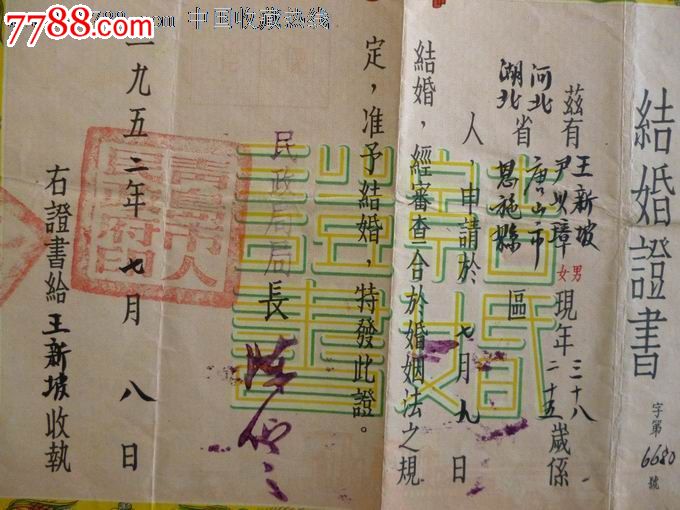 7788.com 中国收藏热线
結婚證書
字第6680號
茲有王新坡 男 現年三十八 歲係
尹以璋 女 二十五
河北 省 唐山市 區
湖北 恩施縣
人，申請於七月九日
結婚，經審查合於婚姻法之規
定，准予結婚，特發此證。
民政局局長
一九五二年七月八日
右證書給王新坡收執
青島市人
民政府印